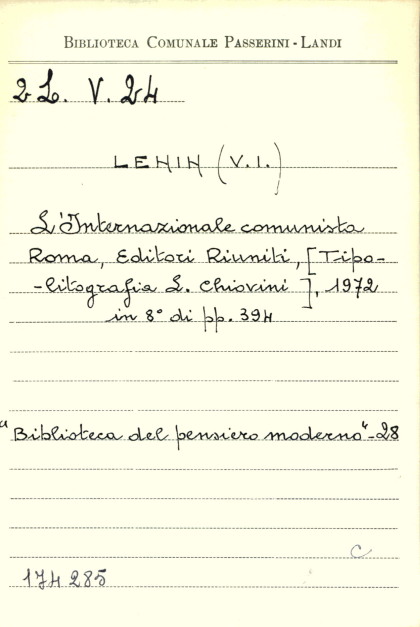 BIBLIOTECA COMUNALE PASSERINI - LANDI
2L. V. 24
LENIN (V.I.)
L'Internazionale comunista
Roma, Editori Riuniti, [Tipo-
-litografia L. Chiovini], 1972
in 8° di pp. 394
"Biblioteca del pensiero moderno"-28
C
174285